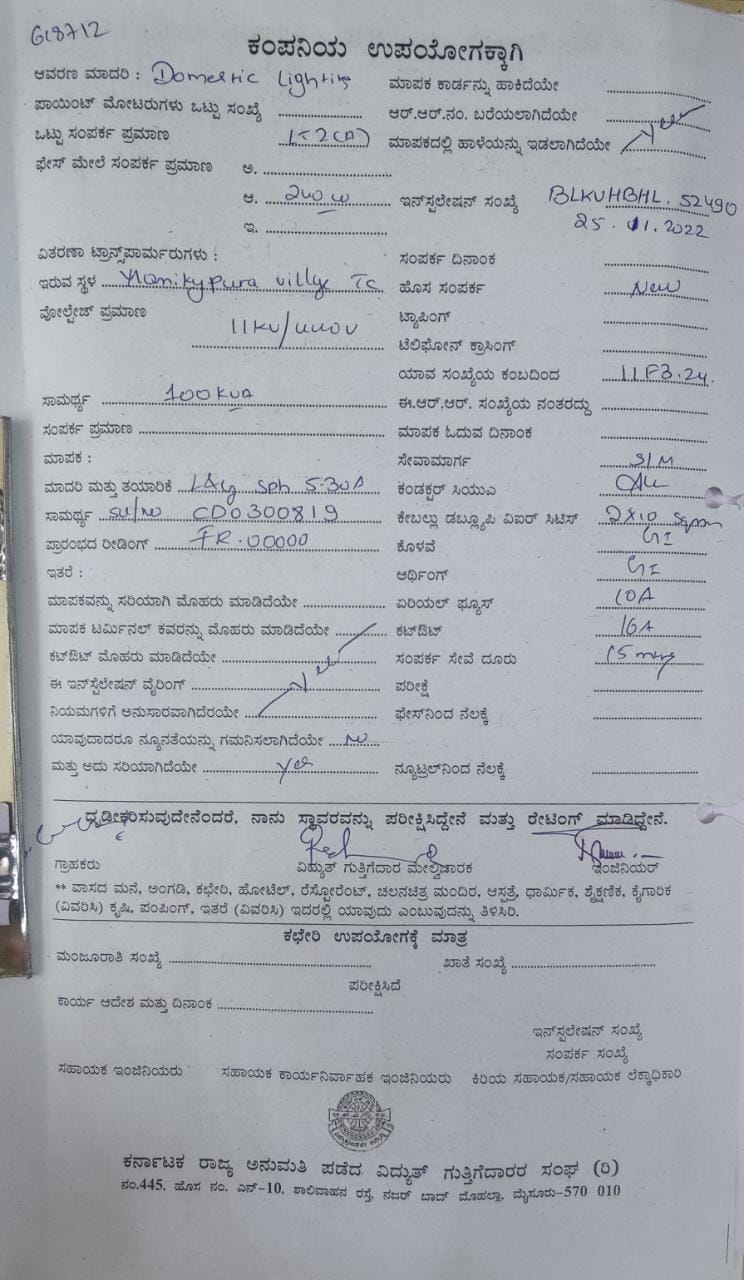 618712
ಕಂಪನಿಯ ಉಪಯೋಗಕ್ಕಾಗಿ
ಆವರಣ ಮಾದರಿ : Domestic Lighting ಮಾಪಕ ಕಾರ್ಡನ್ನು ಹಾಕಿದೆಯೇ
ಪಾಯಿಂಟ್ ಮೋಟರುಗಳು ಒಟ್ಟು ಸಂಖ್ಯೆ ಆರ್.ಆರ್.ನಂ. ಬರೆಯಲಾಗಿದೆಯೇ
ಒಟ್ಟು ಸಂಪರ್ಕ ಪ್ರಮಾಣ ಮಾಪಕದಲ್ಲಿ ಹಾಳೆಯನ್ನು ಇಡಲಾಗಿದೆಯೇ Yes
ಫೇಸ್ ಮೇಲೆ ಸಂಪರ್ಕ ಪ್ರಮಾಣ ಅ.
ಆ. 240 W ಇನ್‌ಸ್ಟಲೇಷನ್ ಸಂಖ್ಯೆ BLKUHBHL. 52490
ಇ. 25.01.2022
ವಿತರಣಾ ಟ್ರಾನ್ಸ್‌ಪಾರ್ಮರುಗಳು : ಸಂಪರ್ಕ ದಿನಾಂಕ
ಇರುವ ಸ್ಥಳ Manikypura villge TC ಹೊಸ ಸಂಪರ್ಕ New
ವೋಲ್ಟೇಜ್ ಪ್ರಮಾಣ 11KV/440V ಟ್ಯಾಪಿಂಗ್
ಟೆಲಿಫೋನ್ ಕ್ರಾಸಿಂಗ್
ಯಾವ ಸಂಖ್ಯೆಯ ಕಂಬದಿಂದ 11F3.24.
ಸಾಮರ್ಥ್ಯ 100 KVA ಈ.ಆರ್.ಆರ್. ಸಂಖ್ಯೆಯ ನಂತರದ್ದು
ಸಂಪರ್ಕ ಪ್ರಮಾಣ ಮಾಪಕ ಓದುವ ದಿನಾಂಕ
ಮಾಪಕ : ಸೇವಾಮಾರ್ಗ S/M
ಮಾದರಿ ಮತ್ತು ತಯಾರಿಕೆ L&G Sph 5.30A ಕಂಡಕ್ಟರ್ ಸಿಯುಎ
ಸಾಮರ್ಥ್ಯ Sl/No CD0300819 ಕೇಬಲ್ಲು ಡಬ್ಲ್ಯೂಪಿ ವಿಐರ್ ಸಿಟಿಸ್ 2X10 Sqmm
ಪ್ರಾರಂಭದ ರೀಡಿಂಗ್ FR.00000 ಕೊಳವೆ GI
ಇತರೆ : ಆರ್ಥಿಂಗ್ GI
ಮಾಪಕವನ್ನು ಸರಿಯಾಗಿ ಮೊಹರು ಮಾಡಿದೆಯೇ ಏರಿಯಲ್ ಫ್ಯೂಸ್ 10A
ಮಾಪಕ ಟರ್ಮಿನಲ್ ಕವರನ್ನು ಮೊಹರು ಮಾಡಿದೆಯೇ ಕಟ್‌ಔಟ್ 16A
ಕಟ್‌ಔಟ್ ಮೊಹರು ಮಾಡಿದೆಯೇ ಸಂಪರ್ಕ ಸೇವೆ ದೂರು 15 mtrs
ಈ ಇನ್‌ಸ್ಟೆಲೇಷನ್ ವೈರಿಂಗ್ Yes ಪರೀಕ್ಷೆ
ನಿಯಮಗಳಿಗೆ ಅನುಸಾರವಾಗಿದೆರಯೇ ಫೇಸ್‌ನಿಂದ ನೆಲಕ್ಕೆ
ಯಾವುದಾದರೂ ನ್ಯೂನತೆಯನ್ನು ಗಮನಿಸಲಾಗಿದೆಯೇ No
ಮತ್ತು ಅದು ಸರಿಯಾಗಿದೆಯೇ Yes ನ್ಯೂಟ್ರಲ್‌ನಿಂದ ನೆಲಕ್ಕೆ
ಧೃಡೀಕರಿಸುವುದೇನೆಂದರೆ, ನಾನು ಸ್ಥಾವರವನ್ನು ಪರೀಕ್ಷಿಸಿದ್ದೇನೆ ಮತ್ತು ರೇಟಿಂಗ್ ಮಾಡಿದ್ದೇನೆ.
ಗ್ರಾಹಕರು ವಿದ್ಯುತ್ ಗುತ್ತಿಗೆದಾರ ಮೇಲ್ವಿಚಾರಕ ಇಂಜಿನಿಯರ್
** ವಾಸದ ಮನೆ, ಅಂಗಡಿ, ಕಛೇರಿ, ಹೋಟೆಲ್, ರೆಸ್ಟೋರೆಂಟ್, ಚಲನಚಿತ್ರ ಮಂದಿರ, ಆಸ್ಪತ್ರೆ, ಧಾರ್ಮಿಕ, ಶೈಕ್ಷಣಿಕ, ಕೈಗಾರಿಕ
(ವಿವರಿಸಿ) ಕೃಷಿ, ಪಂಪಿಂಗ್, ಇತರೆ (ವಿವರಿಸಿ) ಇದರಲ್ಲಿ ಯಾವುದು ಎಂಬುವುದನ್ನು ತಿಳಿಸಿರಿ.
ಕಛೇರಿ ಉಪಯೋಗಕ್ಕೆ ಮಾತ್ರ
ಮಂಜೂರಾತಿ ಸಂಖ್ಯೆ ಖಾತೆ ಸಂಖ್ಯೆ
ಪರೀಕ್ಷಿಸಿದೆ
ಕಾರ್ಯ ಆದೇಶ ಮತ್ತು ದಿನಾಂಕ
ಇನ್‌ಸ್ಪಲೇಷನ್ ಸಂಖ್ಯೆ
ಸಂಪರ್ಕ ಸಂಖ್ಯೆ
ಸಹಾಯಕ ಇಂಜಿನಿಯರು ಸಹಾಯಕ ಕಾರ್ಯನಿರ್ವಾಹಕ ಇಂಜಿನಿಯರು ಕಿರಿಯ ಸಹಾಯಕ/ಸಹಾಯಕ ಲೆಕ್ಕಾಧಿಕಾರಿ
ಕರ್ನಾಟಕ ರಾಜ್ಯ ಅನುಮತಿ ಪಡೆದ ವಿದ್ಯುತ್ ಗುತ್ತಿಗೆದಾರರ ಸಂಘ (ರಿ)
ನಂ.445, ಹೊಸ ನಂ. ಎನ್-10, ಶಾಲಿವಾಹನ ರಸ್ತೆ, ನಜರ್ ಬಾದ್ ಮೊಹಲ್ಲಾ, ಮೈಸೂರು-570 010